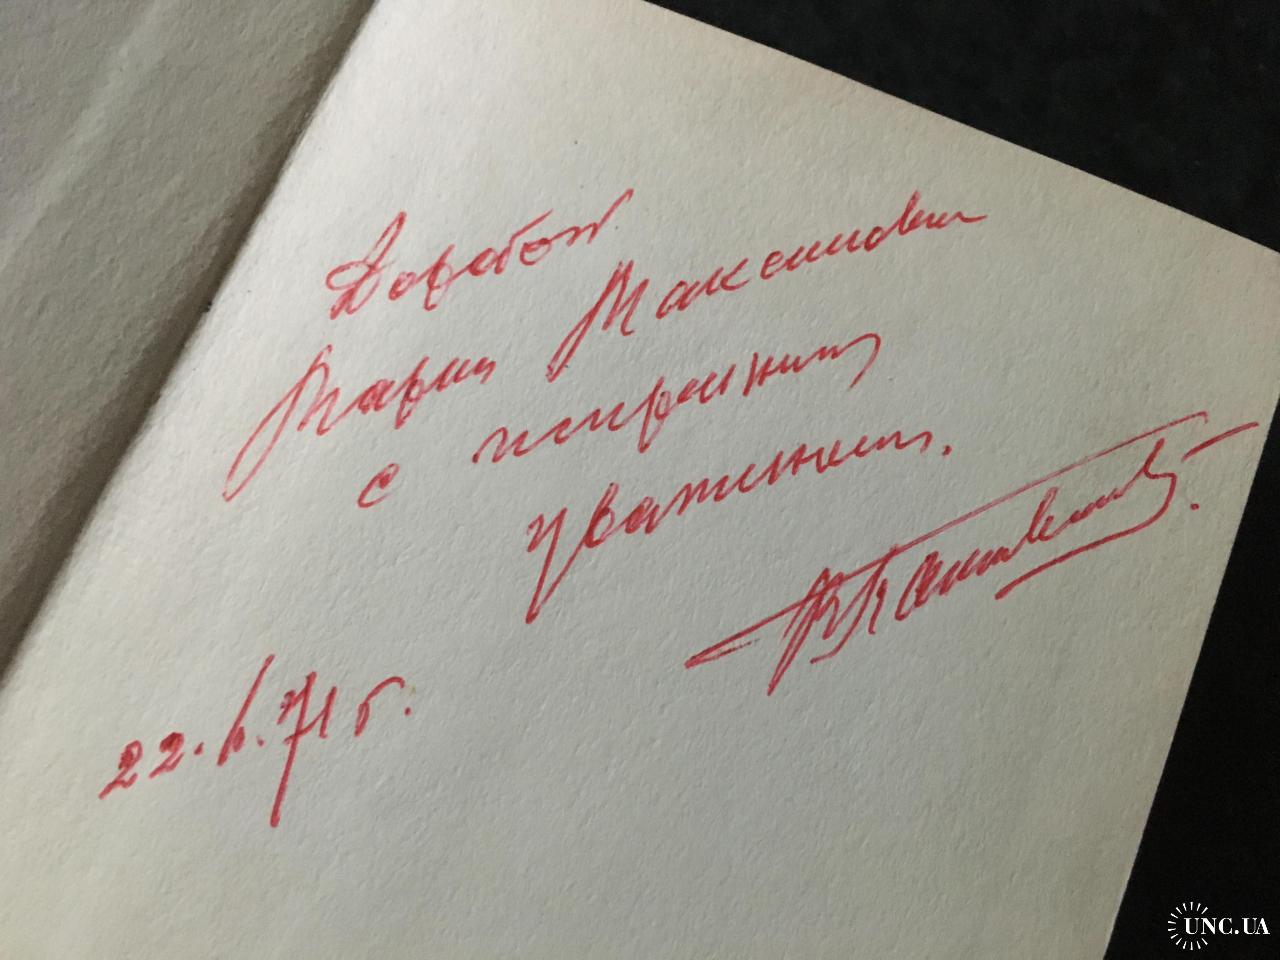 Дорогой
Марии Максимовне
с искренним
уважением.
22.6.71 г.
UNC.UA